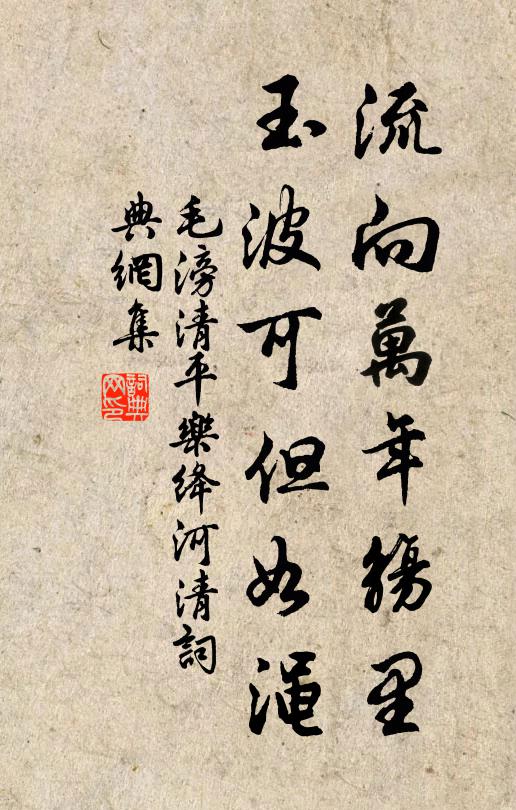 流向萬年觴里
玉波可但如澠
毛滂清平樂絳河清詞
典網集
詞典網印